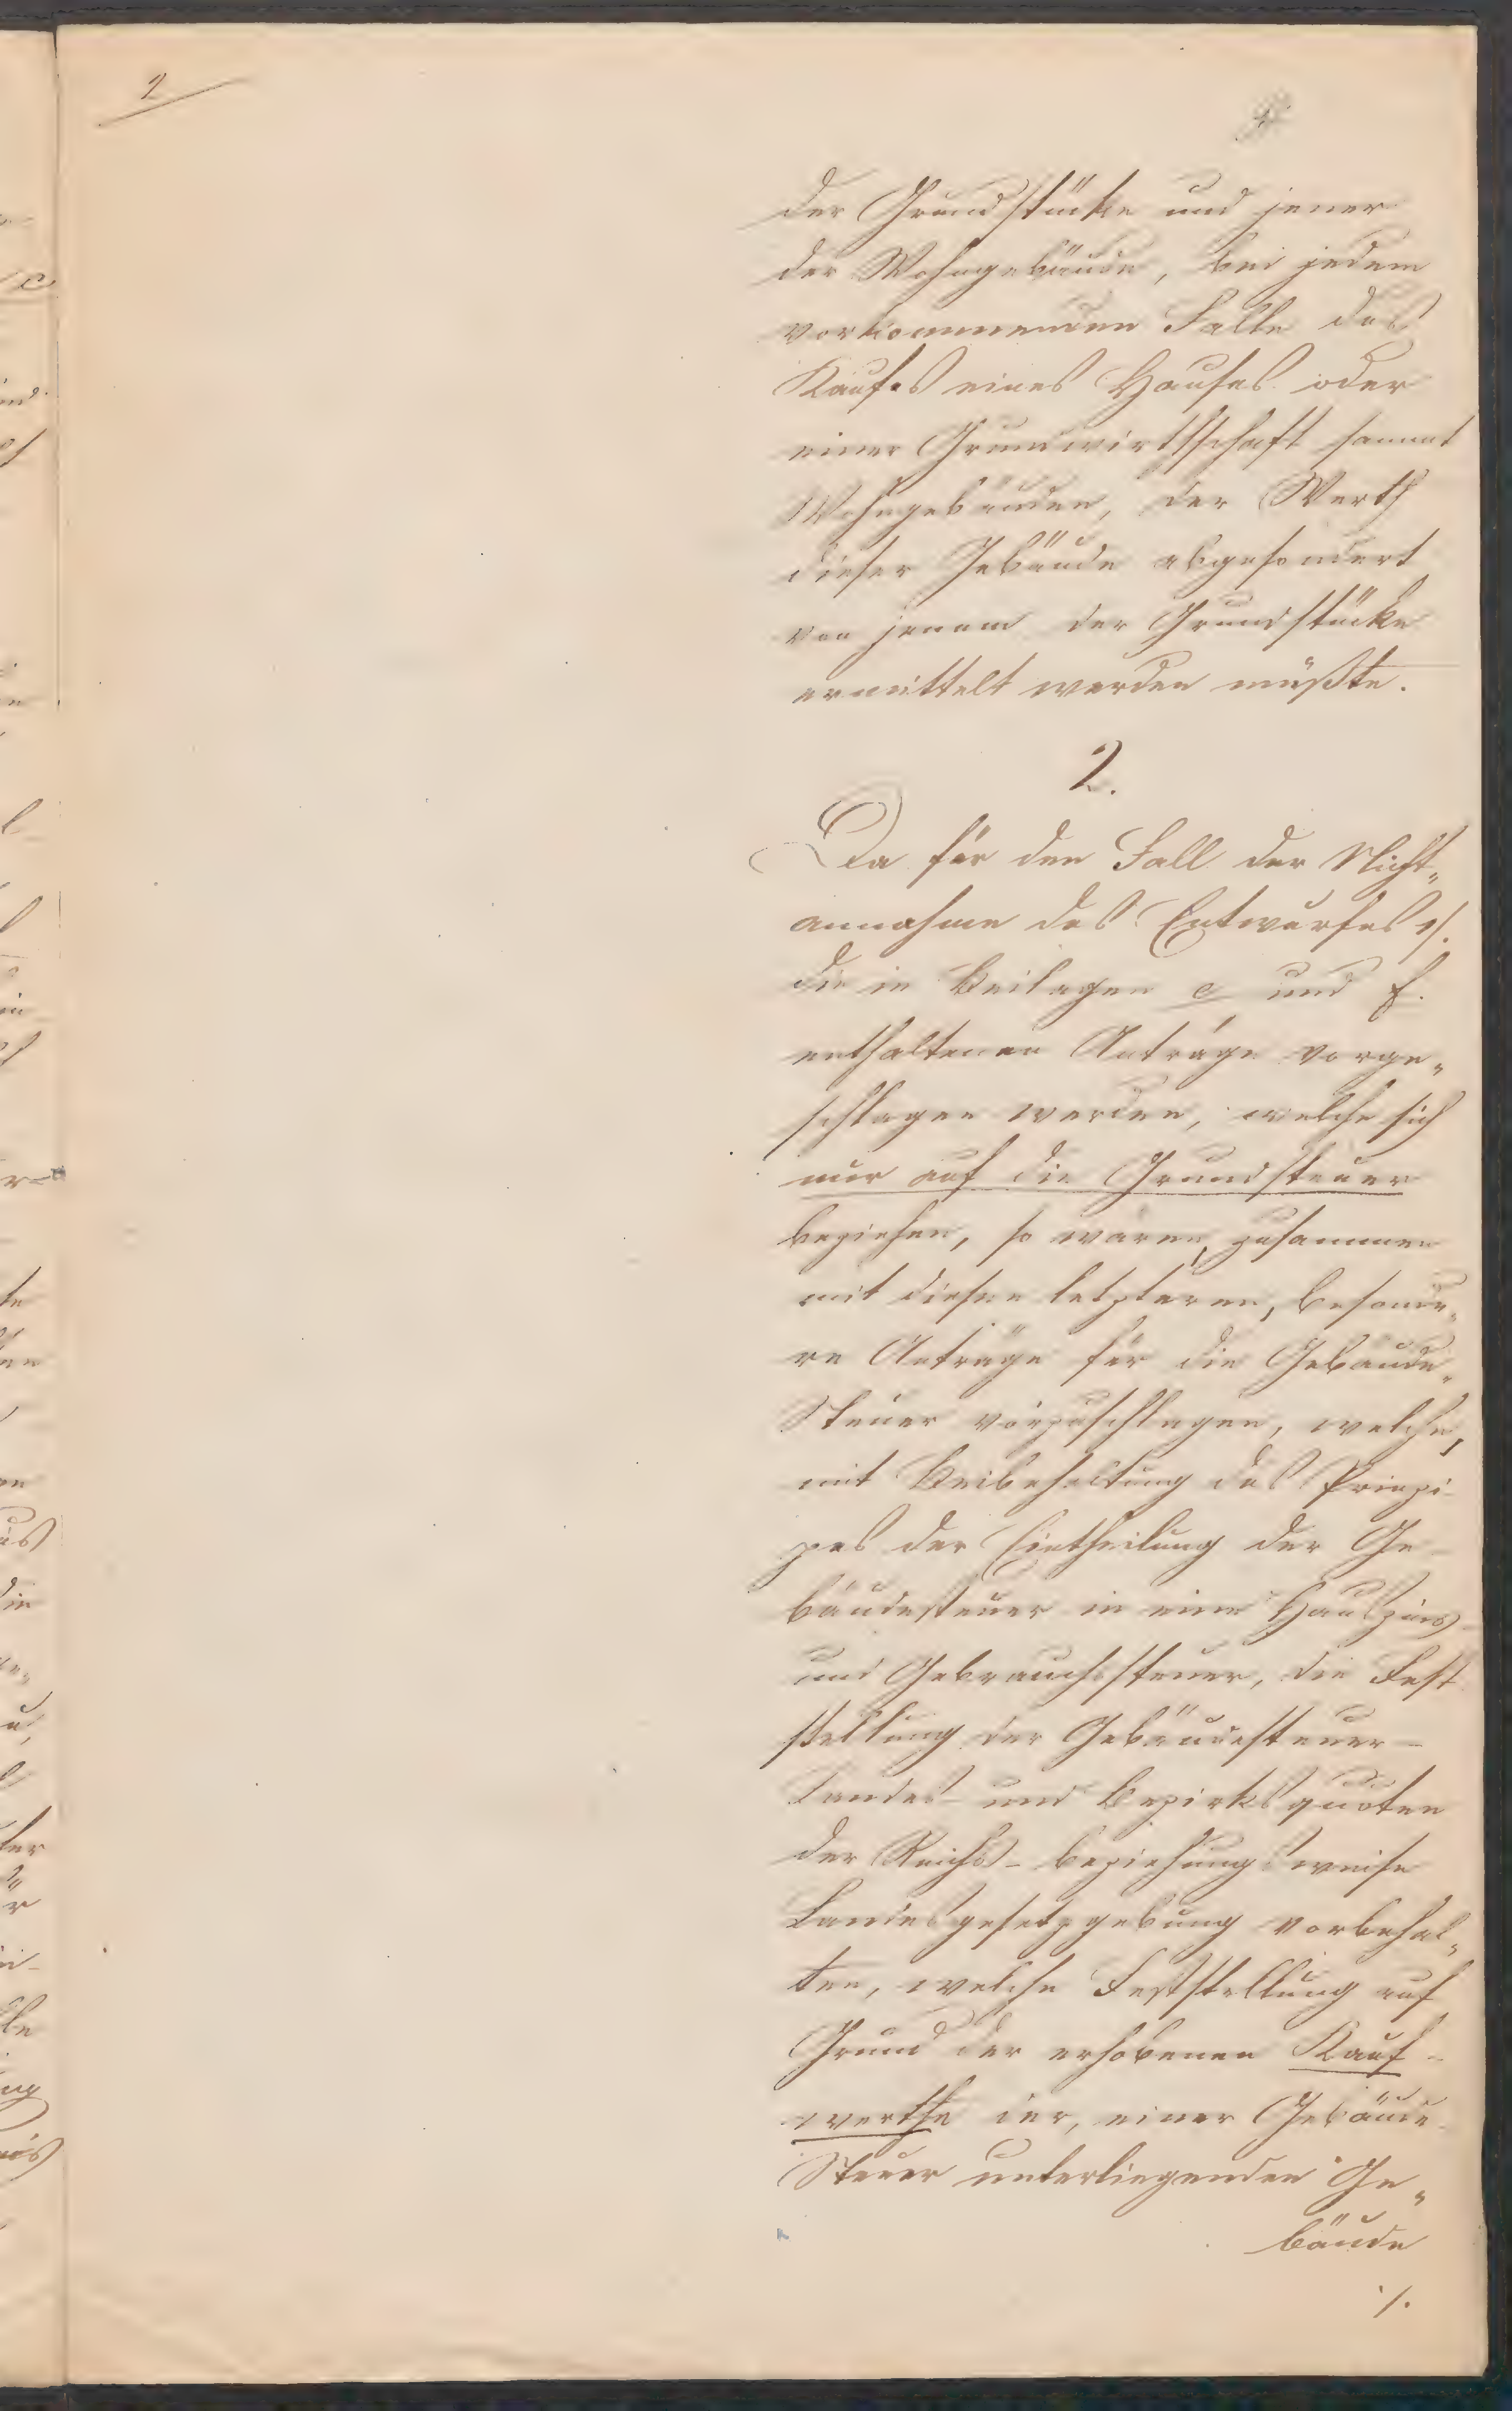 2
der Grundstücke und jener
der Wohngebäude, bei jedem
vorkommenden Falle des
Kaufes eines Hauses oder
einer Grundwirthschaft sammt
Wohngebäuden, der Werth
dieser Gebäude abgesondert
von jenem der Grundstücke
ermittelt werden müßte.
2.
Da für den Fall der Nicht„
annahme des Entwurfes
die in Beilagen e und f.
enthaltenen Anträge vorge„
schlagen werden, welche sich
nur auf die Grundsteuer
beziehen, so wären, zusammen
mit diesen letzteren, besonde„
re Anträge für die Gebäude„
Steuer vorzuschlagen, welche,
mit Beibehaltung des Prinzi-
pes der Eintheilung der Ge-
bäudesteuer in eine Hauszins-
und Gebrauchssteuer, die Fest
stellung der Gebäudesteuer-
Landes- und Bezirksquoten
der Reichs- beziehungsweise
Landesgesetzgebung vorbehal„
ten, welche Feststellung auf
Grund der erhobenen Kauf-
werthe der, einer Gebäude-
Steuer unterliegenden Ge„
bäude
./.